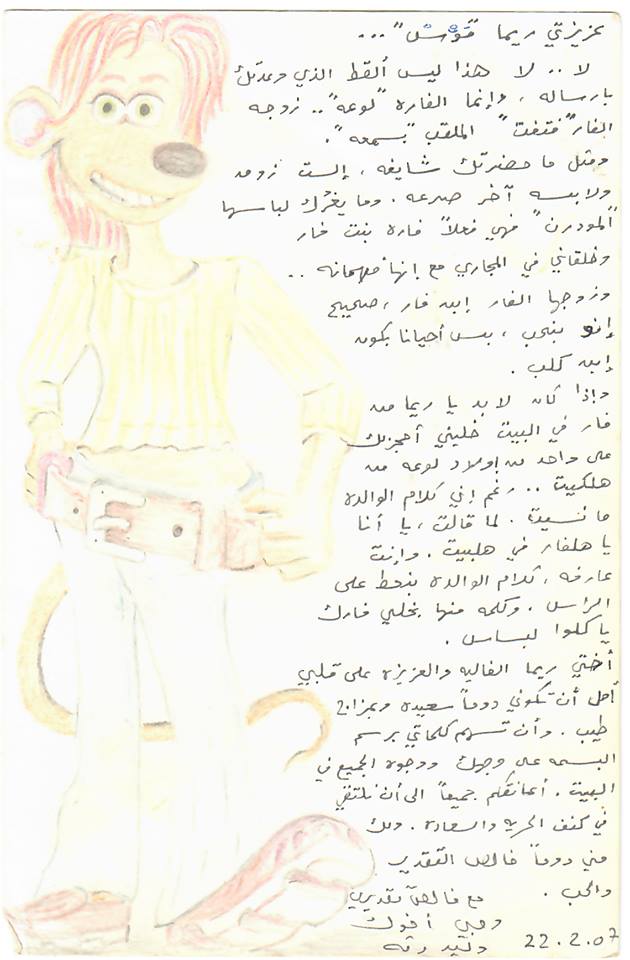 عزيزتي ريما "قوّش" ...
لا .. لا هذا ليس القط الذي وعدتك
بارساله ، وإنما الفاره "لوعه" .. زوجه
الفار "فتفت" الملقب "بسمعه".
ومثل ما حضرتك شايفه ، إلست زومه
ولابسه آخر صرعه . وما يغرّك لباسها
"المودرن" فهي فعلاً فاره بنت فار
وخلقاني في المجاري مع إنها مهمانه ..
وزوجها الفار إبن فار ، صحيح
إنو بنحب ، بس أحيانا بكون
إبن كلب .
وإذا كان لا بد يا ريما من
فار في البيت خليني أحجزلك
على واحد من اولاد لوعه من
هلكيت .. رغم إني كلام الوالده
ما نسيت . لما قالت ، يا أنا
يا هلفار في هلبيت . وإنت
عارفه ، كلام الوالده بنحط على
الراس . وكلمه منها بخلي فارك
ياكلوا لبساس .
أختي ريما الغاليه والعزيزه على قلبي
أمل أن تكوني دوماً سعيده وبمزاج
طيب . وأن تسهم كلماتي برسم
البسمه على وجهك ووجوه الجميع في
البيت . أعانقكم جميعاً الى أن نلتقي
في كنف الحريه والسعادة . ولك
مني دوماً خالص التقدير
والحب .
مع خالص تقديري
وحبي أخوك
وليد دقه
22.2.07